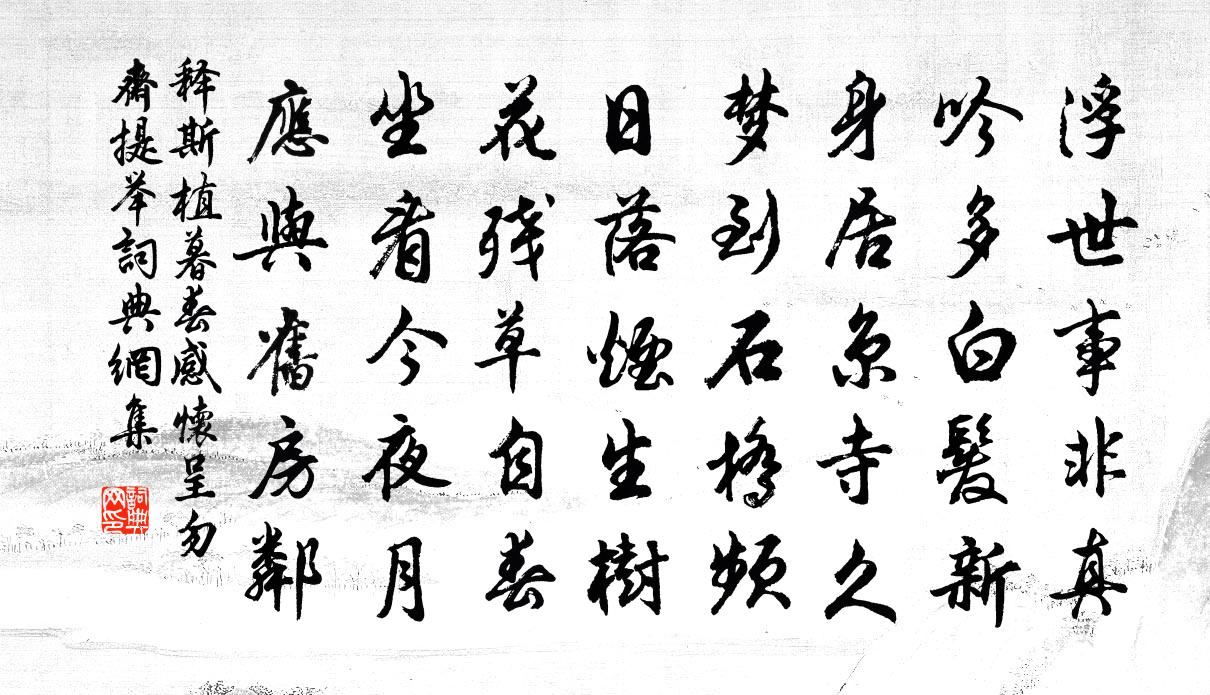 浮世事非真
吟多白髮新
身居京寺久
梦到石橋頻
日落煙生樹
花残草自春
坐看今夜月
應與舊房鄰
释斯植暮春感懷呈勿
齋提举詞典網集
詞典
网印